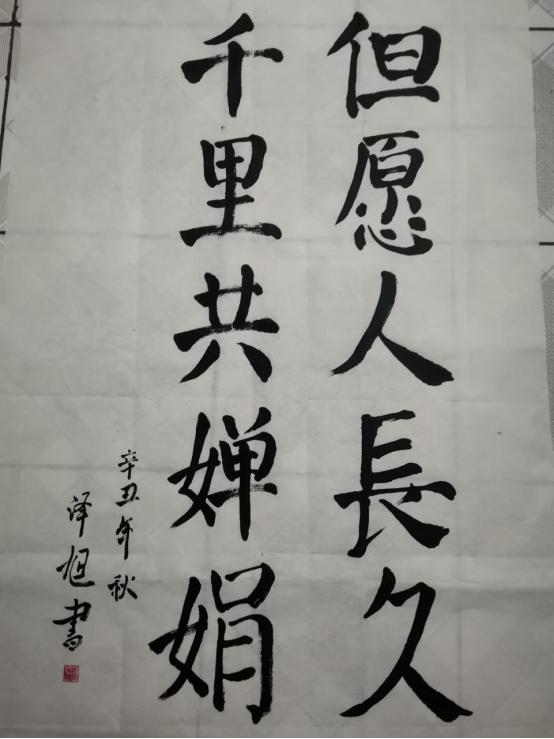 但愿人長久
千里共婵娟
辛丑年秋
泽旭書